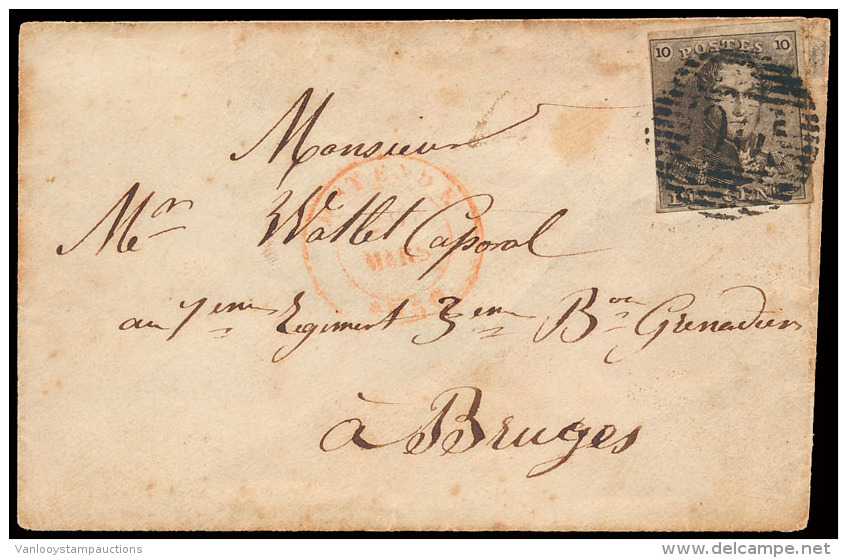 10 POSTES 10
Monsieur
OSTENDE
Mr Wallet Caporal
MARS
au 7eme Regiment 3em Bon Grenadiers
à Bruges
Vanlooystampauctions
www.delcampe.net